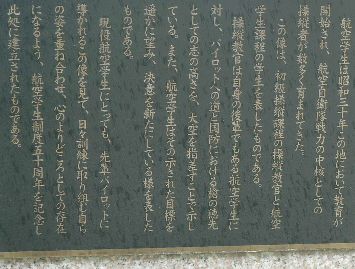 航空学生は昭和三十年この地において教育が
開始され、航空自衛隊戦力の中核としての
操縦者が数多く育まれてきた。
この像は、初級操縦課程の操縦教官と航空
学生課程の学生を表したものである。
操縦教官は自身の後輩でもある航空学生に
対し、パイロットへの道と国防における格の徳先
としての志の高さを、大空を指差すことで示し
ている。また、航空学生はその示された目標を
遥かに望み、決意を新たにしている様を表した
ものである。
現役航空学生にとっても、先輩パイロットに
導かれるこの像を見て、日々訓練に取り組む自ら
の姿を重ね合わせ、心のよりどころとしての存在
になるよう、航空学生制度五十周年を記念し
此処に建立されたものである。